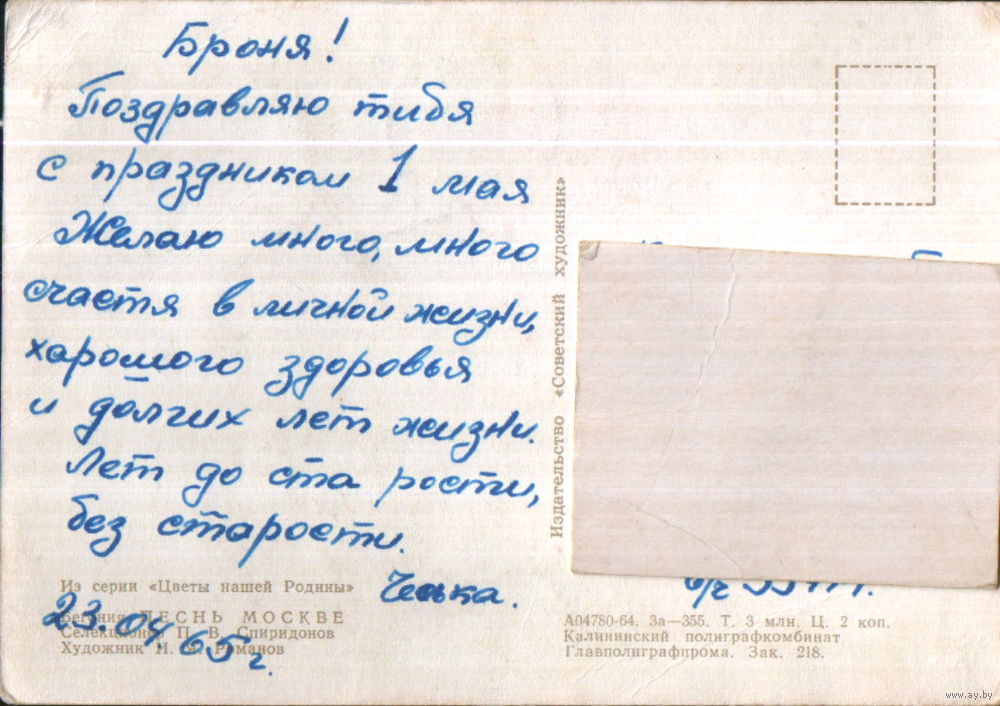 Броня!
Поздравляю тибя
с праздником 1 мая
Желаю много, много
счастя в личной жизни,
харошого здоровья
и долгих лет жизни.
Лет до ста рости,
без старости.
Из серии «Цветы нашей Родины»
Бегония ПЕСНЬ МОСКВЕ
Селекционер П. В. Спиридонов
Художник И. М. Романов
23.04.65 г.
Издательство «Советский художник»
А04780-64. За—355. Т. 3 млн. Ц. 2 коп.
Калининский полиграфкомбинат
Главполиграфпрома. Зак. 218.
www.ay.by